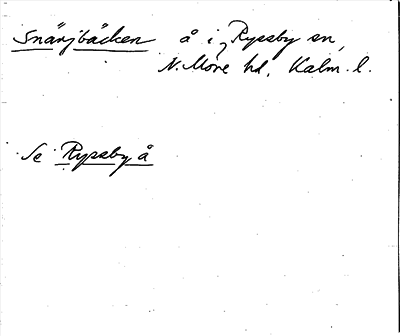 Snärjbäcken å i Ryssby sn,
N. Möre hd, Kalm. l.
Se Ryssby å